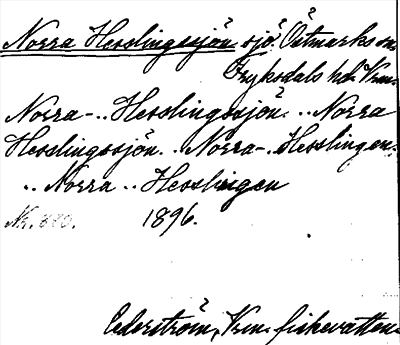 Norra Hesslingssjön sjö. Östmarks sn.
Fryksdals hd. Vrm.
Norra-.. Hesslingssjön. .. Norra
Hesslingssjön. .. Norra-. Hesslingen.
.. Norra .. Hesslingen
Nr. 880. 1896.
Cederström, Vrm. fiskevatten.